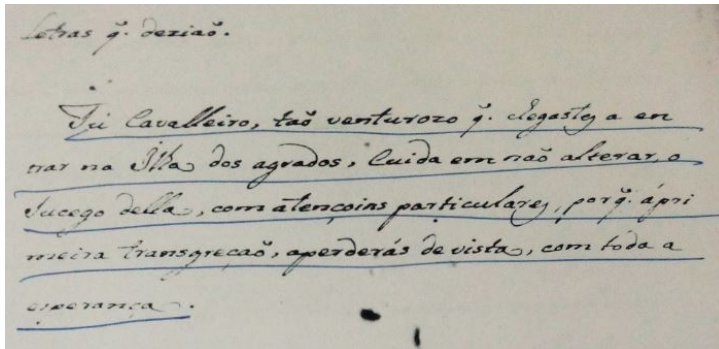 Letras q̃. deziaõ.
Tu Cavalleiro, taõ venturozo q̃. chegastes a en
trar na Ilha dos agrados, Cuida em naõ alterar, o
sucego della, com atençoins particulares, porq̃. á pri
meira transgreçaõ, aperderás de vista, com toda a
esperança.